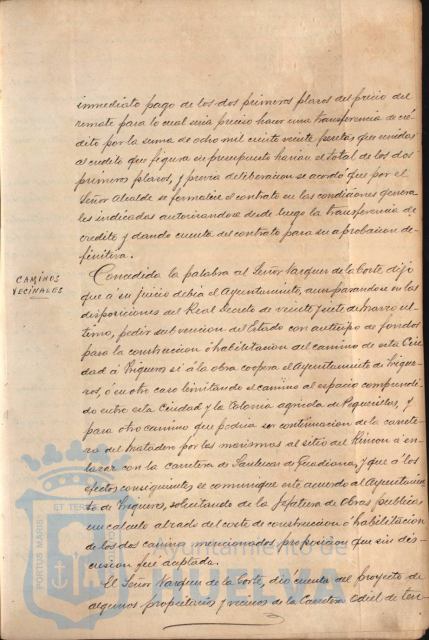 inmediato pago de los dos primeros plazos del precio del
remate para lo cual seria preciso hacer una transferencia de cré-
dito por la suma de ocho mil ciento veinte pesetas que unidas
al credito que figura en presupuesto harian el total de los dos
primeros plazos, y previa deliberacion se acordó que por el
Señor Alcalde se formalice el contrato en las condiciones genera
les indicadas autorizandose desde luego la transferencia de
credito y dando cuenta del contrato para su aprobacion de-
finitiva.
CAMINOS
VECINALES
Concedida la palabra al Señor Vazquez de la Corte dijo
que á su juicio debia el Ayuntamiento, amparandose en las
disposiciones del Real Decreto de veinte y siete de Marzo ul-
timo, pedir subvencion del Estado con anticipo de fondos
para la construccion ó habilitacion del camino de esta Ciu
dad á Trigueros si á la obra coopera el Ayuntamiento de Trigue
ros, ó en otro caso limitando el camino al espacio comprendi
do entre esta Ciudad y la Colonia agricola de Peguerillas, y
para otro camino que podria ser continuacion de la carrete
ra del Matadero por las marismas al sitio del Rincon á en-
lazar con la carretera de Sanlucar de Guadiana, y que á los
efectos consiguientes se comunique este acuerdo al Ayuntamien
to de Trigueros, solicitando de la Jefatura de Obras publicas
un calculo alzado del coste de construccion ó habilitacion
de los dos caminos mencionados, proposicion que sin dis-
cusion fué aceptada.
El Señor Vazquez de la Corte, dió cuenta del proyecto de
algunos propietarios y vecinos de la Carretera Odiel de
PORTUS MARIS ET TERRAE
Ayuntamiento de
HUELVA